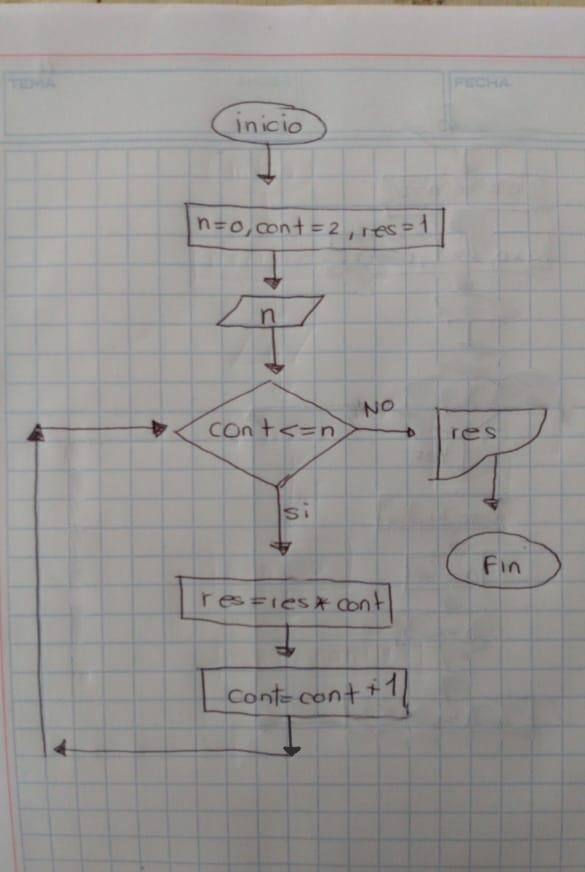 TEMA
FECHA
inicio
n=0, cont=2, res=1
n
cont<=n
NO
res
si
Fin
res=res*cont
cont=cont+1